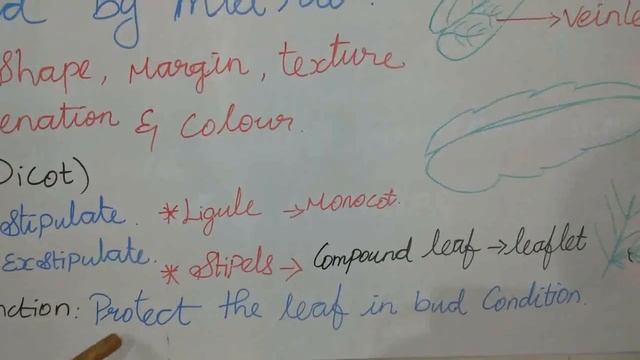 by
veinle
Shape, Margin, texture
enation & Colour.
Dicot)
Stipulate. * Ligule → Monocot.
Exstipulate.
* Stipels → Compound leaf → leaflet
nction: Protect the leaf in bud Condition.